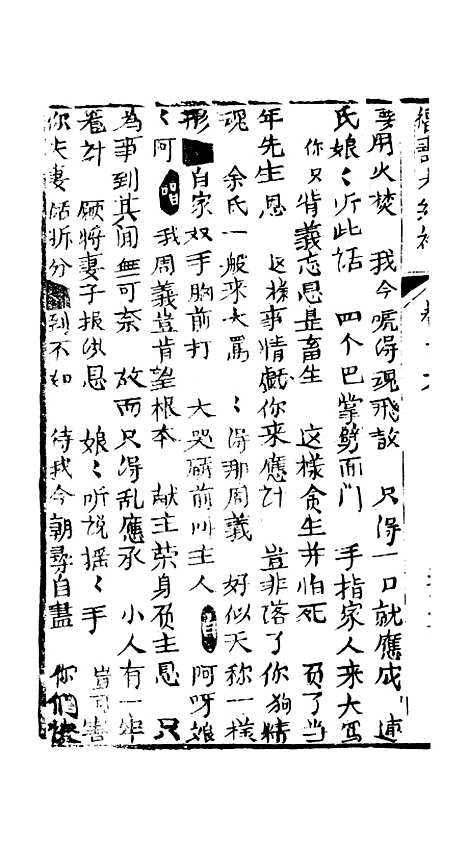 要用火焚　我今唬得魂飛散　只得一口就應成　連
氏娘〻听此話　四个巴掌劈面门　手指家人来大骂
你又背義忘恩是畜生　这樣贪生并怕死　負了当
年先生恩　这樣事情戲你来應計　豈非落了你狗精
魂　余氏一般来大罵　〻得那周義　好似天称一樣
形　白　家奴手胸前打　大哭𤃩前叫主人　白　阿呀娘
〻阿　唱　我周義豈肯望根本　献主荣身负主恩　只
為事到其间無可奈　故而只得乱應承　小人有一牢
卷計　願將妻子报洪恩　娘〻听説摇〻手　豈可害
你夫妻話拆分　到不如　待我今朝尋自盡　你们